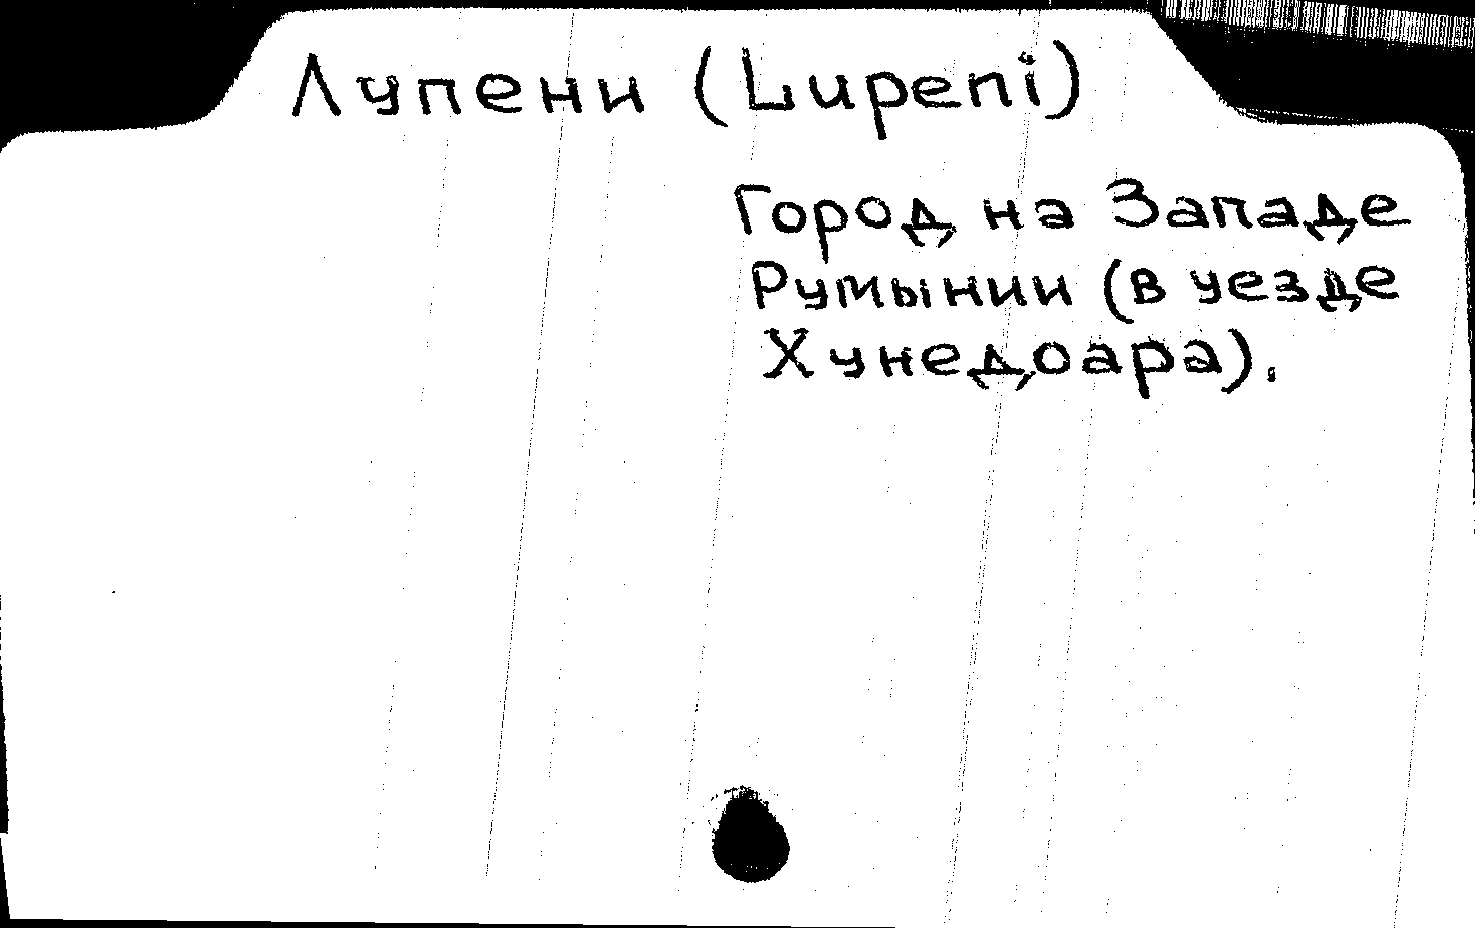 Лупени (Lupeni)
Город на Западе
Румынии (в уезде
Хунедоара).